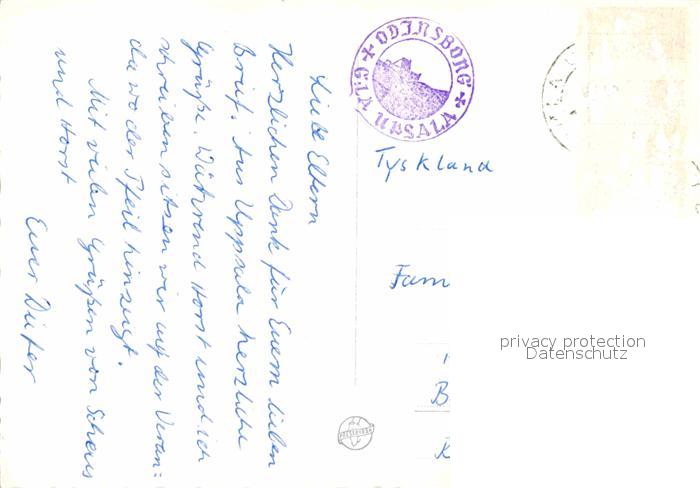 Liebe Eltern
Herzlichen Dank für Euern lieben
Brief. Aus Uppsala herzliche
Grüße. Während Horst und ich
schreiben sitzen wir auf der Veran=
da wo der Pfeil hinzeigt.
Mit vielen Grüßen von
und Horst
Euer Dieter
ODINSBORG
GLA UPSALA
Tyskland
Fam
B
R
privacy protection
Datenschutz